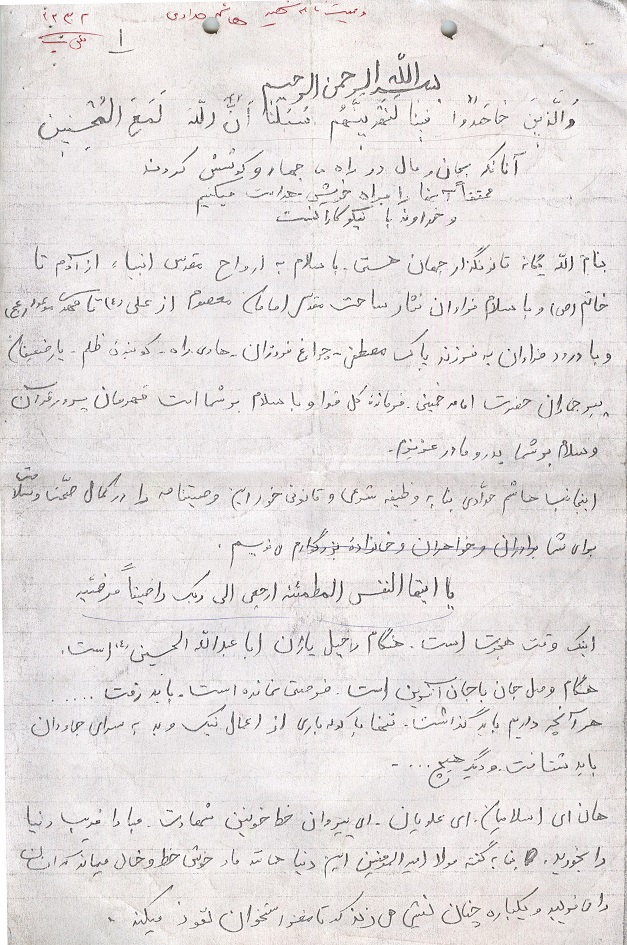 وصیت نامه شهید هاشم حدادی
۱
بسم الله الرحمن الرحیم
وَالَّذینَ جاهَدُوا فینا لَنَهْدِیَنَّهُم سُبُلَنا وَ اِنَّ اللهَ لَمَعَ المُحسِنین
آنانکه بجان و مال در راه ما جهاد و کوشش کردند
محققاً آنها را براه خویش هدایت میکنیم
و خداوند با نیکوکارانست
بنام الله یگانه قانونگذار جهان هستی. با سلام به ارواح مقدس انبیاء از آدم تا
خاتم (ص) و با سلام فراوان نثار ساحت مقدس امامان معصوم از علی (ع) تا مهدی موعود (عج)
و با درود فراوان به فرزند پاک مصطفی - چراغ فروزان - هادی راه - کوبنده ظلم - یار ضعیفان
پیر جماران حضرت امام خمینی - فرمانده کل قوا و با سلام بر شما امت قهرمان پرور قرآن
و سلام بر شما پدر و مادر عزیزم.
اینجانب هاشم حدّادی بنا به وظیفه شرعی و قانونی خود این وصیتنامه را در کمال صحّت و سلامت
برای شما برادران و خواهران و خانواده بزرگوارم می نویسم.
یا ایتها النفس المطمئنه ارجعی الی ربک راضیتاً مرضیه
اینک وقت هجرت است. هنگام رحیل یاران ابا عبدالله الحسین (ع) است.
هنگام وصل جان با جان آفرین است. فرصتی نمانده است. باید رفت .....
هر آنچه داریم باید گذاشت. تنها با کوله باری از اعمال نیک و بد به سرای جاودان
باید شتافت. و دیگر هیچ ....
هان ای اسلامیان. ای علویان. ای پیروان خط خونین شهادت. مبادا فریب دنیا
را بخورید. بنا به گفته مولا امیرالمومنین این دنیا مانند مار خوش خط و خال میماند که انسان
را می فریبد و یکباره چنان نیشی می زند که تا مغز استخوان نفوذ میکند.